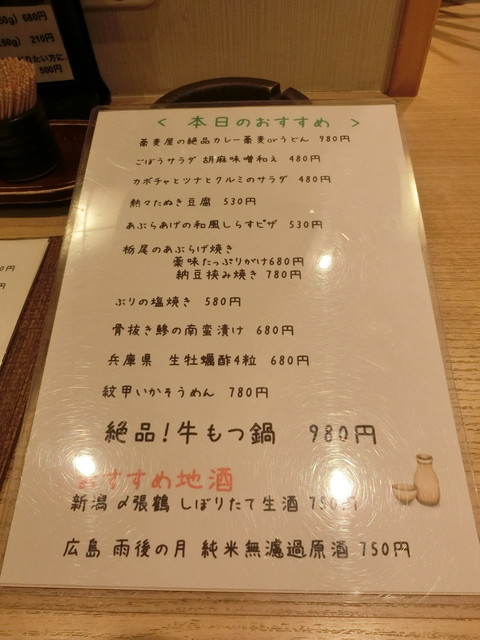 50g) 680円
150g) 210円
500円
< 本日のおすすめ >
蕎麦屋の絶品カレー蕎麦orうどん 980円
ごぼうサラダ 胡麻味噌和え 480円
カボチャとツナとクルミのサラダ 480円
熱々たぬき豆腐 530円
あぶらあげの和風しらすピザ 530円
栃尾のあぶらげ焼き
薬味たっぷりがけ680円
納豆挟み焼き 780円
ぶりの塩焼き 580円
骨抜き鯵の南蛮漬け 680円
兵庫県 生牡蠣酢4粒 680円
紋甲いかそうめん 780円
絶品!牛もつ鍋 980円
おすすめ地酒
新潟 〆張鶴 しぼりたて生酒 750円
広島 雨後の月 純米無濾過原酒 750円